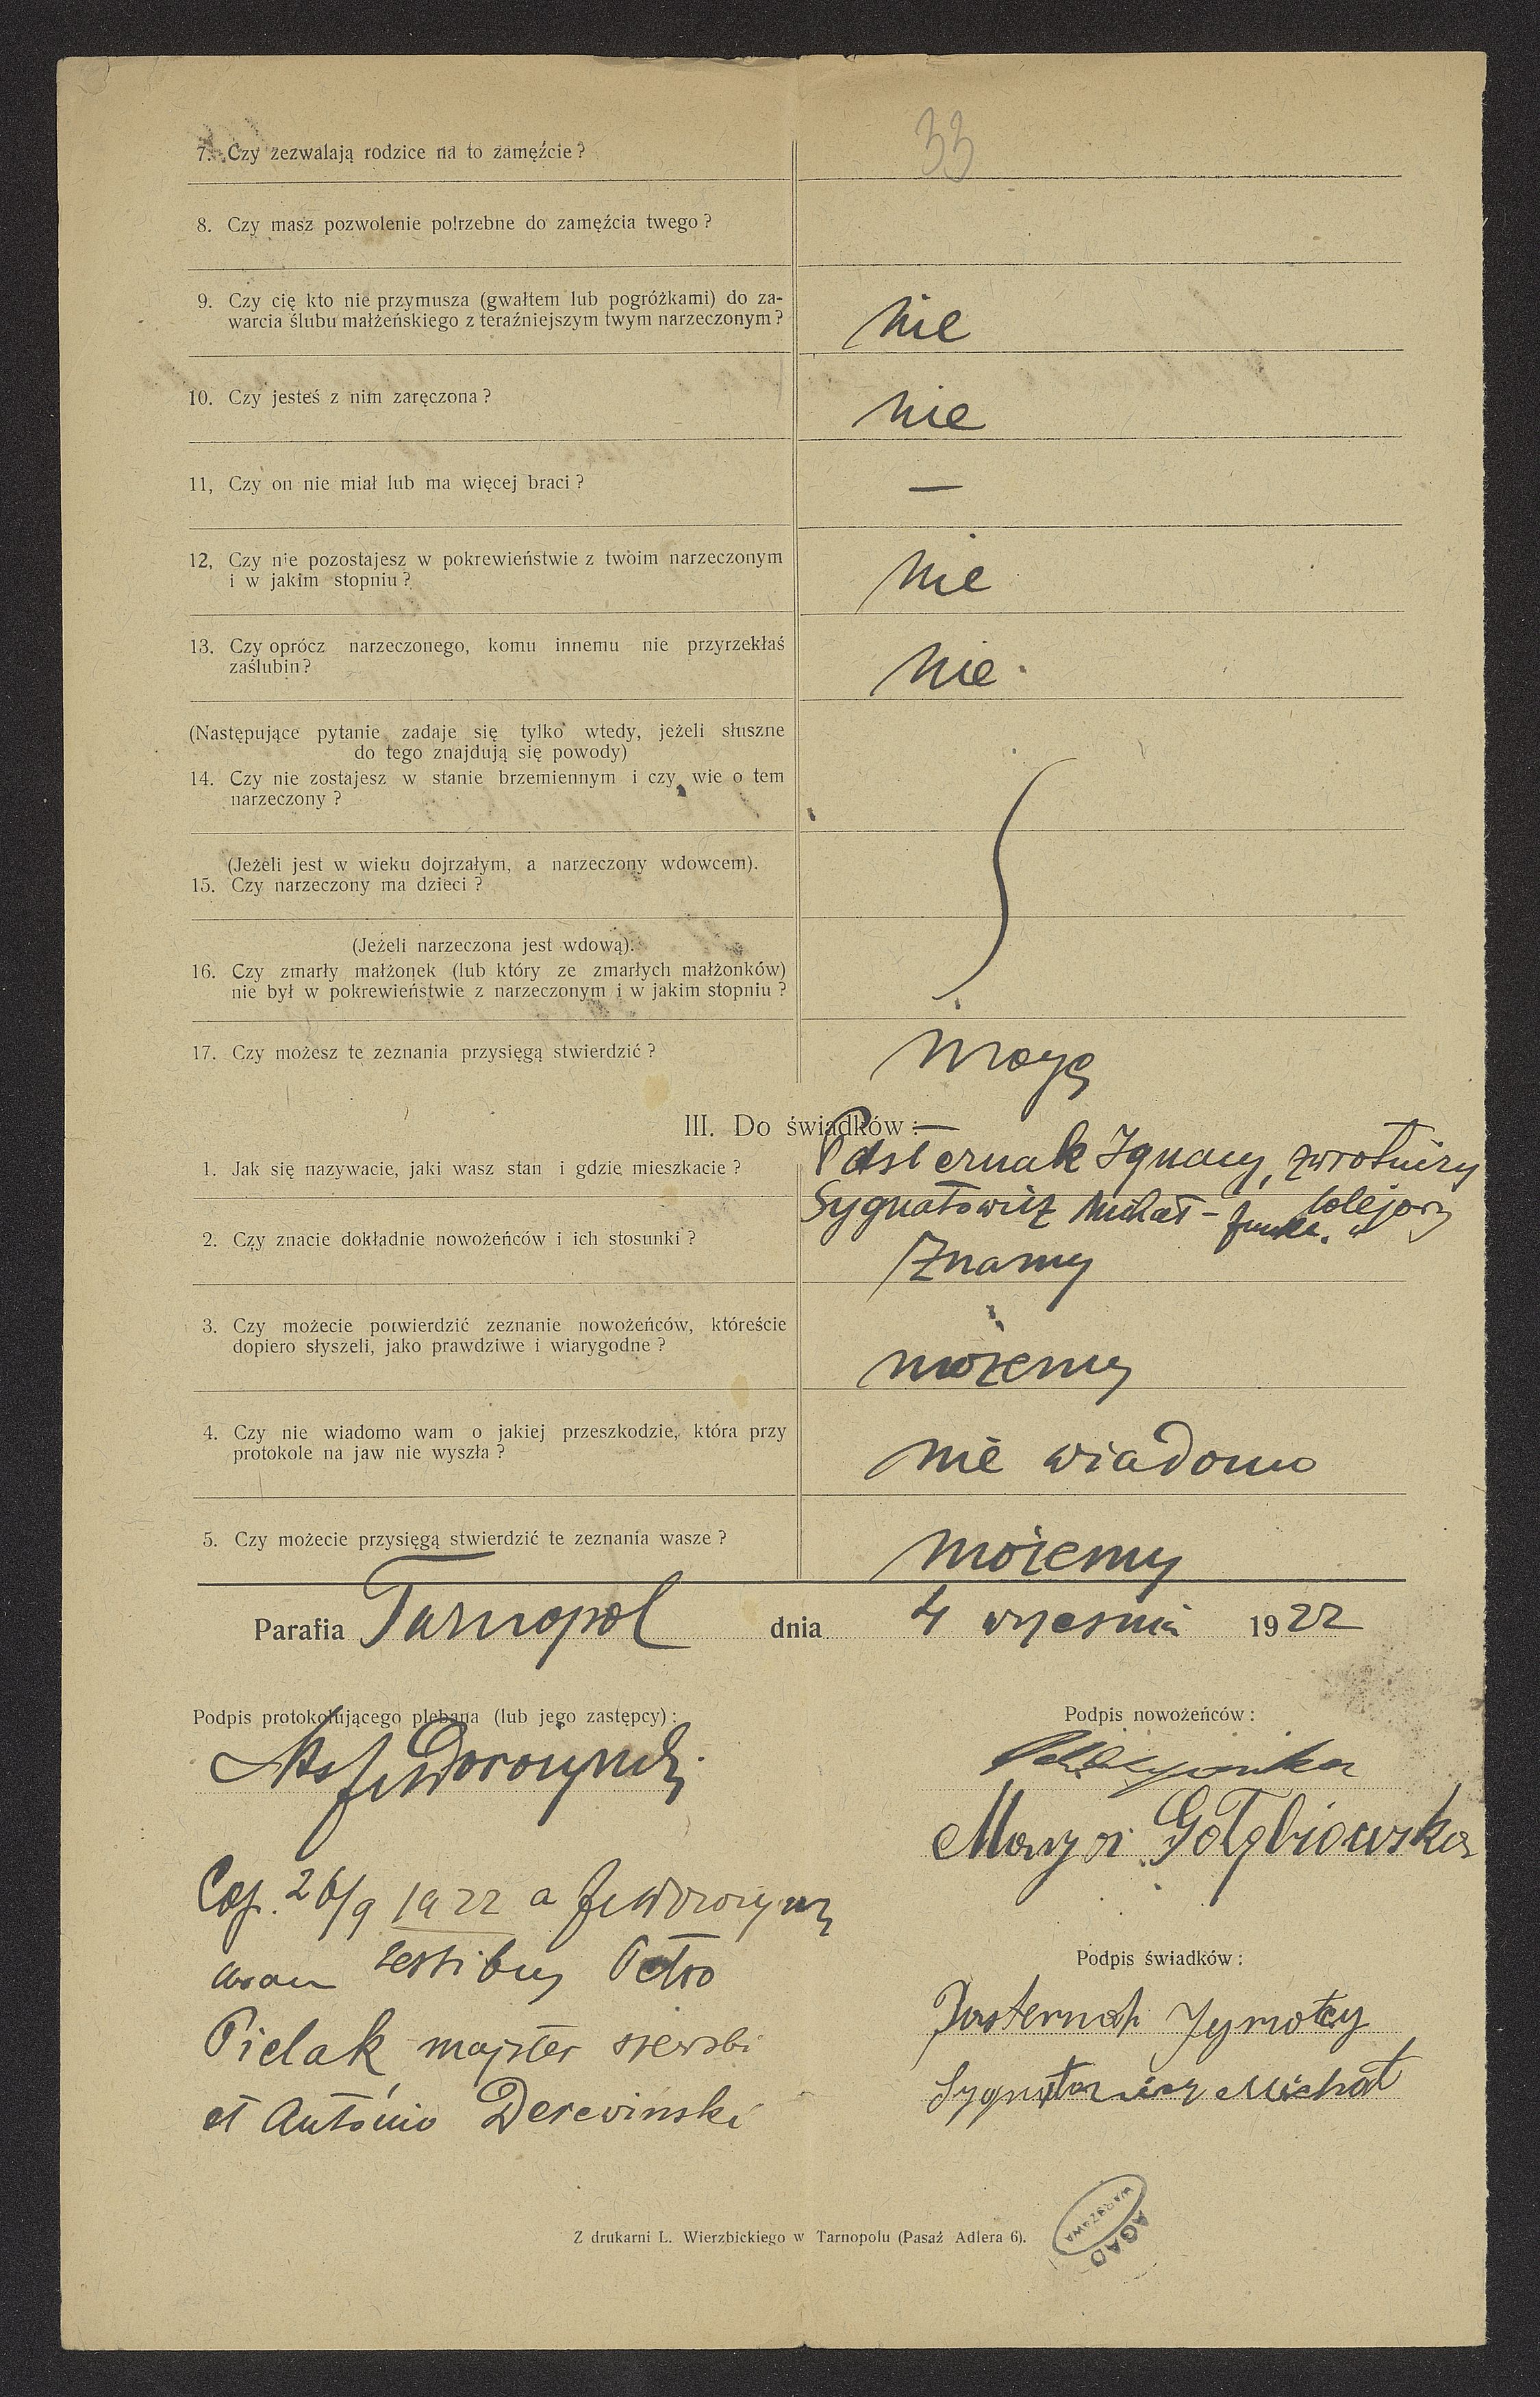 33
7. Czy zezwalają rodzice na to zamęźcie?
8. Czy masz pozwolenie potrzebne do zamęźcia twego?
9. Czy cię kto nie przymusza (gwałtem lub pogróżkami) do za-
warcia ślubu małżeńskiego z teraźniejszym twym narzeczonym?
nie
10. Czy jesteś z nim zaręczona?
nie
11, Czy on nie miał lub ma więcej braci?
—
12, Czy nie pozostajesz w pokrewieństwie z twoim narzeczonym
i w jakim stopniu?
nie
13. Czy oprócz narzeczonego, komu innemu nie przyrzekłaś
zaślubin?
nie
(Następujące pytanie zadaje się tylko wtedy, jeżeli słuszne
do tego znajdują się powody)
14. Czy nie zostajesz w stanie brzemiennym i czy wie o tem
narzeczony?
(Jeżeli jest w wieku dojrzałym, a narzeczony wdowcem).
15. Czy narzeczony ma dzieci?
(Jeżeli narzeczona jest wdową).
16. Czy zmarły małżonek (lub który ze zmarłych małżonków)
nie był w pokrewieństwie z narzeczonym i w jakim stopniu?
17. Czy możesz te zeznania przysięgą stwierdzić?
mogę
III. Do świadków:
1. Jak się nazywacie, jaki wasz stan i gdzie mieszkacie?
Pasternak Ignacy, zwrotniczy
Sygnatowicz Michał - funkc. kolejowy
2. Czy znacie dokładnie nowożeńców i ich stosunki?
Znamy
3. Czy możecie potwierdzić zeznanie nowożeńców, któreście
dopiero słyszeli, jako prawdziwe i wiarygodne?
możemy
4. Czy nie wiadomo wam o jakiej przeszkodzie, która przy
protokole na jaw nie wyszła?
nie wiadomo
5. Czy możecie przysięgą stwierdzić te zeznania wasze?
możemy
Parafia Tarnopol dnia 4 września 1922
Podpis protokołującego plebana (lub jego zastępcy):
Podpis nowożeńców:
Marya Gołębiowska
Cop. 26/9 1922 a
coram testibus Petro
Pielak majster szewski
et Antonio Derewinski
Podpis świadków:
Pasternak
Sygnatowicz Michał
Z drukarni L. Wierzbickiego w Tarnopolu (Pasaż Adlera 6).
AGAD
WARSZAWA